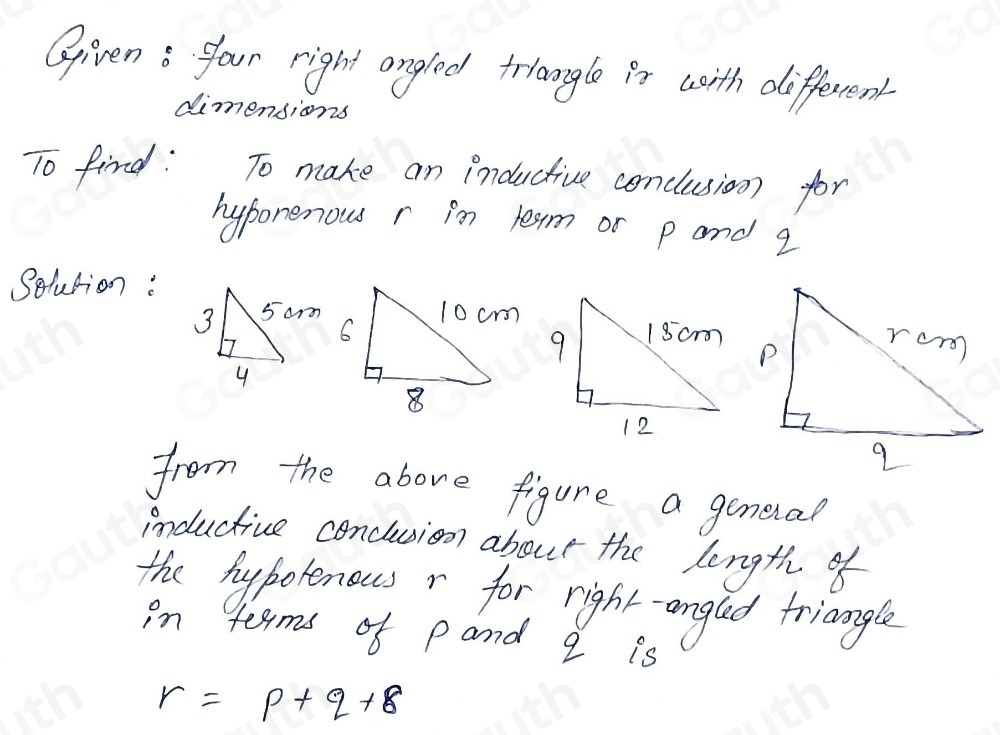 Given : Four right angled triangle is with different
dimensions
To find : To make an inductive conclusion for
hyponenous r in term or p and q
Solution :
3 5 cm 4
6 10 cm 8
9 15cm 12
p r cm q
From the above figure a general
inductive conclusion about the length of
the hypotenous r for right-angled triangle
in terms of p and q is
r = p + q + 8
Gauth